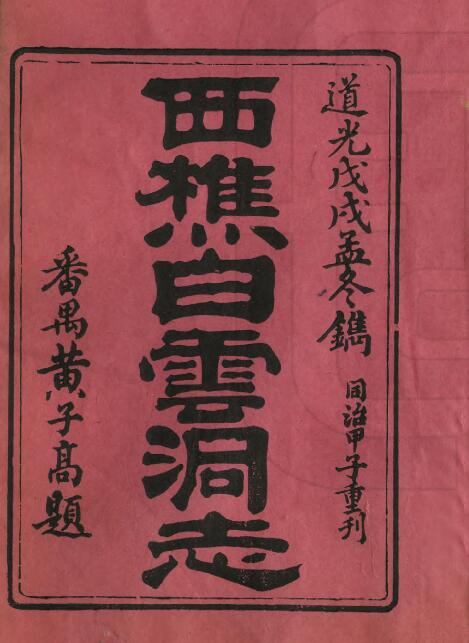 道光戊戌孟冬鐫 同治甲子重刊
西樵白雲洞志
番禺黄子高題